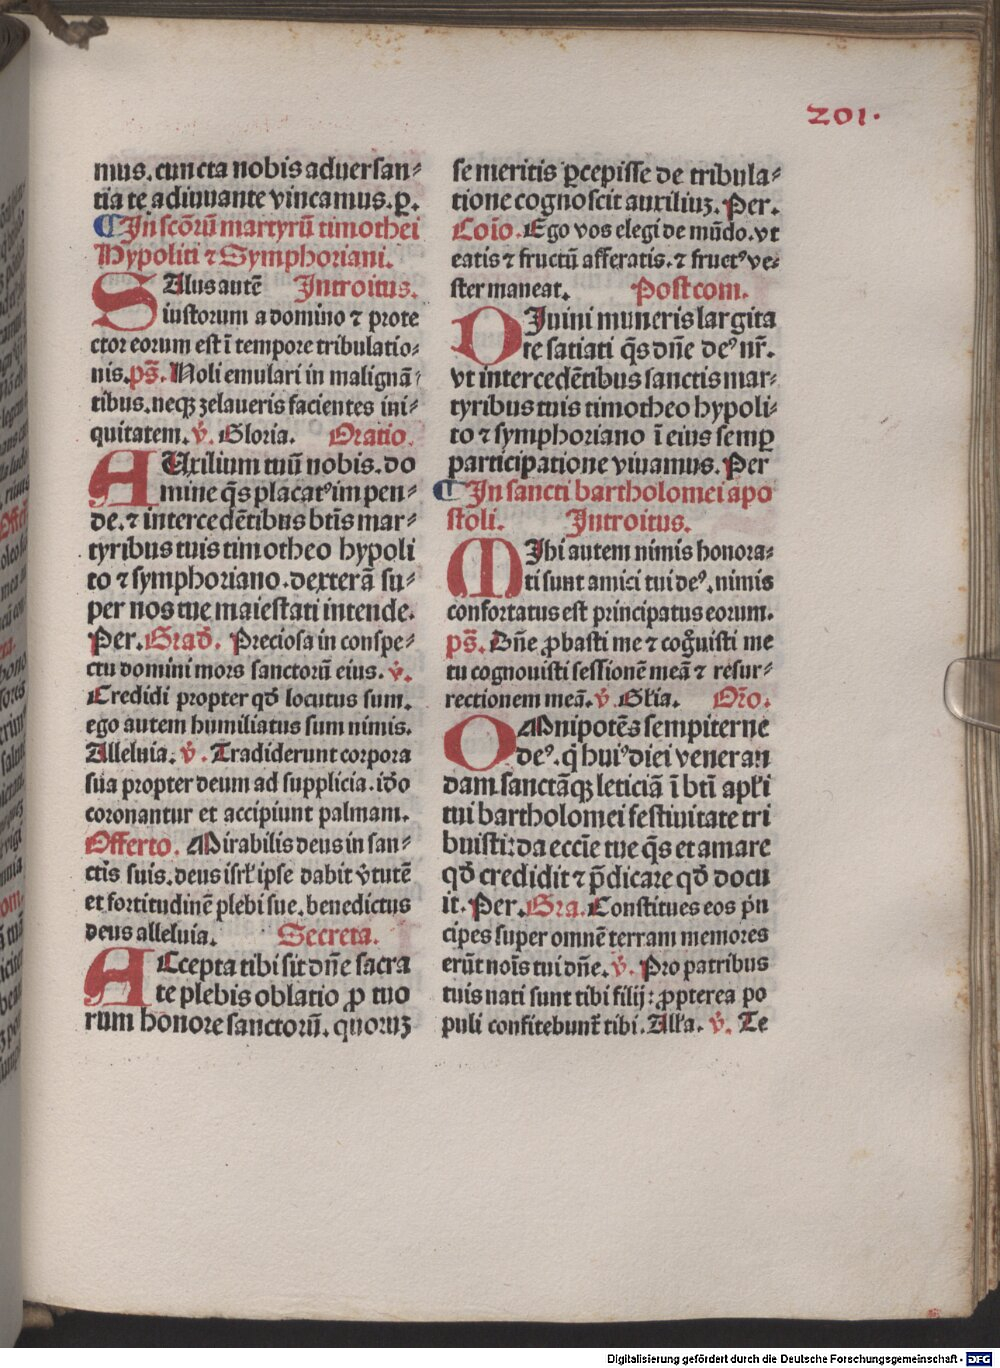 201.
mus. cuncta nobis aduersan⸗
tia te adiuuante vincamus. ꝑ.
¶ In scōꝝū martyrū timothei
Hypoliti ⁊ Symphoriani.
SAlus autē Introitus.
iustorum a domino ⁊ prote
ctor eorum est ī tempore tribulatio⸗
nis. ps̄. Noli emulari in malignā⸗
tibus. neqꝫ zelaueris facientes ini⸗
quitatem. v̄. Gloria. Oratio.
AUxilium tuū nobis. do
mine q̄s placatꝰ impen⸗
de. ⁊ intercedētibus btīs mar⸗
tyribus tuis timotheo hypoli
to ⁊ symphoriano. dexterā su⸗
per nos tue maiestati intende.
Per. Grad̄. Preciosa in conspe⸗
ctu domini mors sanctorū eius. v̄.
Credidi propter qd̄ locutus sum.
ego autem humiliatus sum nimis.
Alleluia. v̄. Tradiderunt corpora
sua propter deum ad supplicia. id̄o
coronantur et accipiunt palmam.
Offerto. Mirabilis deus in san⸗
ctis suis. deus isrl̄ ipse dabit v̄tutē
et fortitudinē plebi sue. benedictus
deus alleluia. Secreta.
ACcepta tibi sit dn̄e sacra
te plebis oblatio ꝓ tuo
rum honore sanctorū. quoruꝫ
se meritis ꝑcepisse de tribula⸗
tione cognoscit auxiliuꝫ. Per.
Coīo. Ego vos elegi de mūdo. vt
eatis ⁊ fructū afferatis. ⁊ fructꝰ ve⸗
ster maneat. Postcom.
DIuini muneris largita
te satiati q̄s dn̄e deꝰ nr̄.
vt intercedētibus sanctis mar⸗
tyribus tuis timotheo hypoli⸗
to ⁊ symphoriano ī eius semꝑ
participatione viuamus. Per
¶ In sancti bartholomei apo
stoli. Introitus.
MIhi autem nimis honora⸗
ti sunt amici tui deꝰ. nimis
confortatus est principatus eorum.
ps̄. Dn̄e ꝓbasti me ⁊ cog̊uisti me
tu cognouisti sessionē meā ⁊ resur⸗
rectionem meā. v̄. Gl̄ia. Or̄o.
OMnipotēs sempiterne
deꝰ. q̄ huiꝰ diei veneran
dam sanctāqꝫ leticiā ī bt̄i apl̄i
tui bartholomei festiuitate tri
buisti: da eccīe tue q̄s et amare
qd̄ credidit ⁊ p̄dicare qd̄ docu
it. Per. Gra. Constitues eos p̄n
cipes super omnē terram memores
erūt noīs tui dn̄e. v̄. Pro patribus
tuis nati sunt tibi filij: ꝓpterea po
puli confitebunt̄ tibi. All̄a. v̄. Te
Digitalisierung gefördert durch die Deutsche Forschungsgemeinschaft - DFG